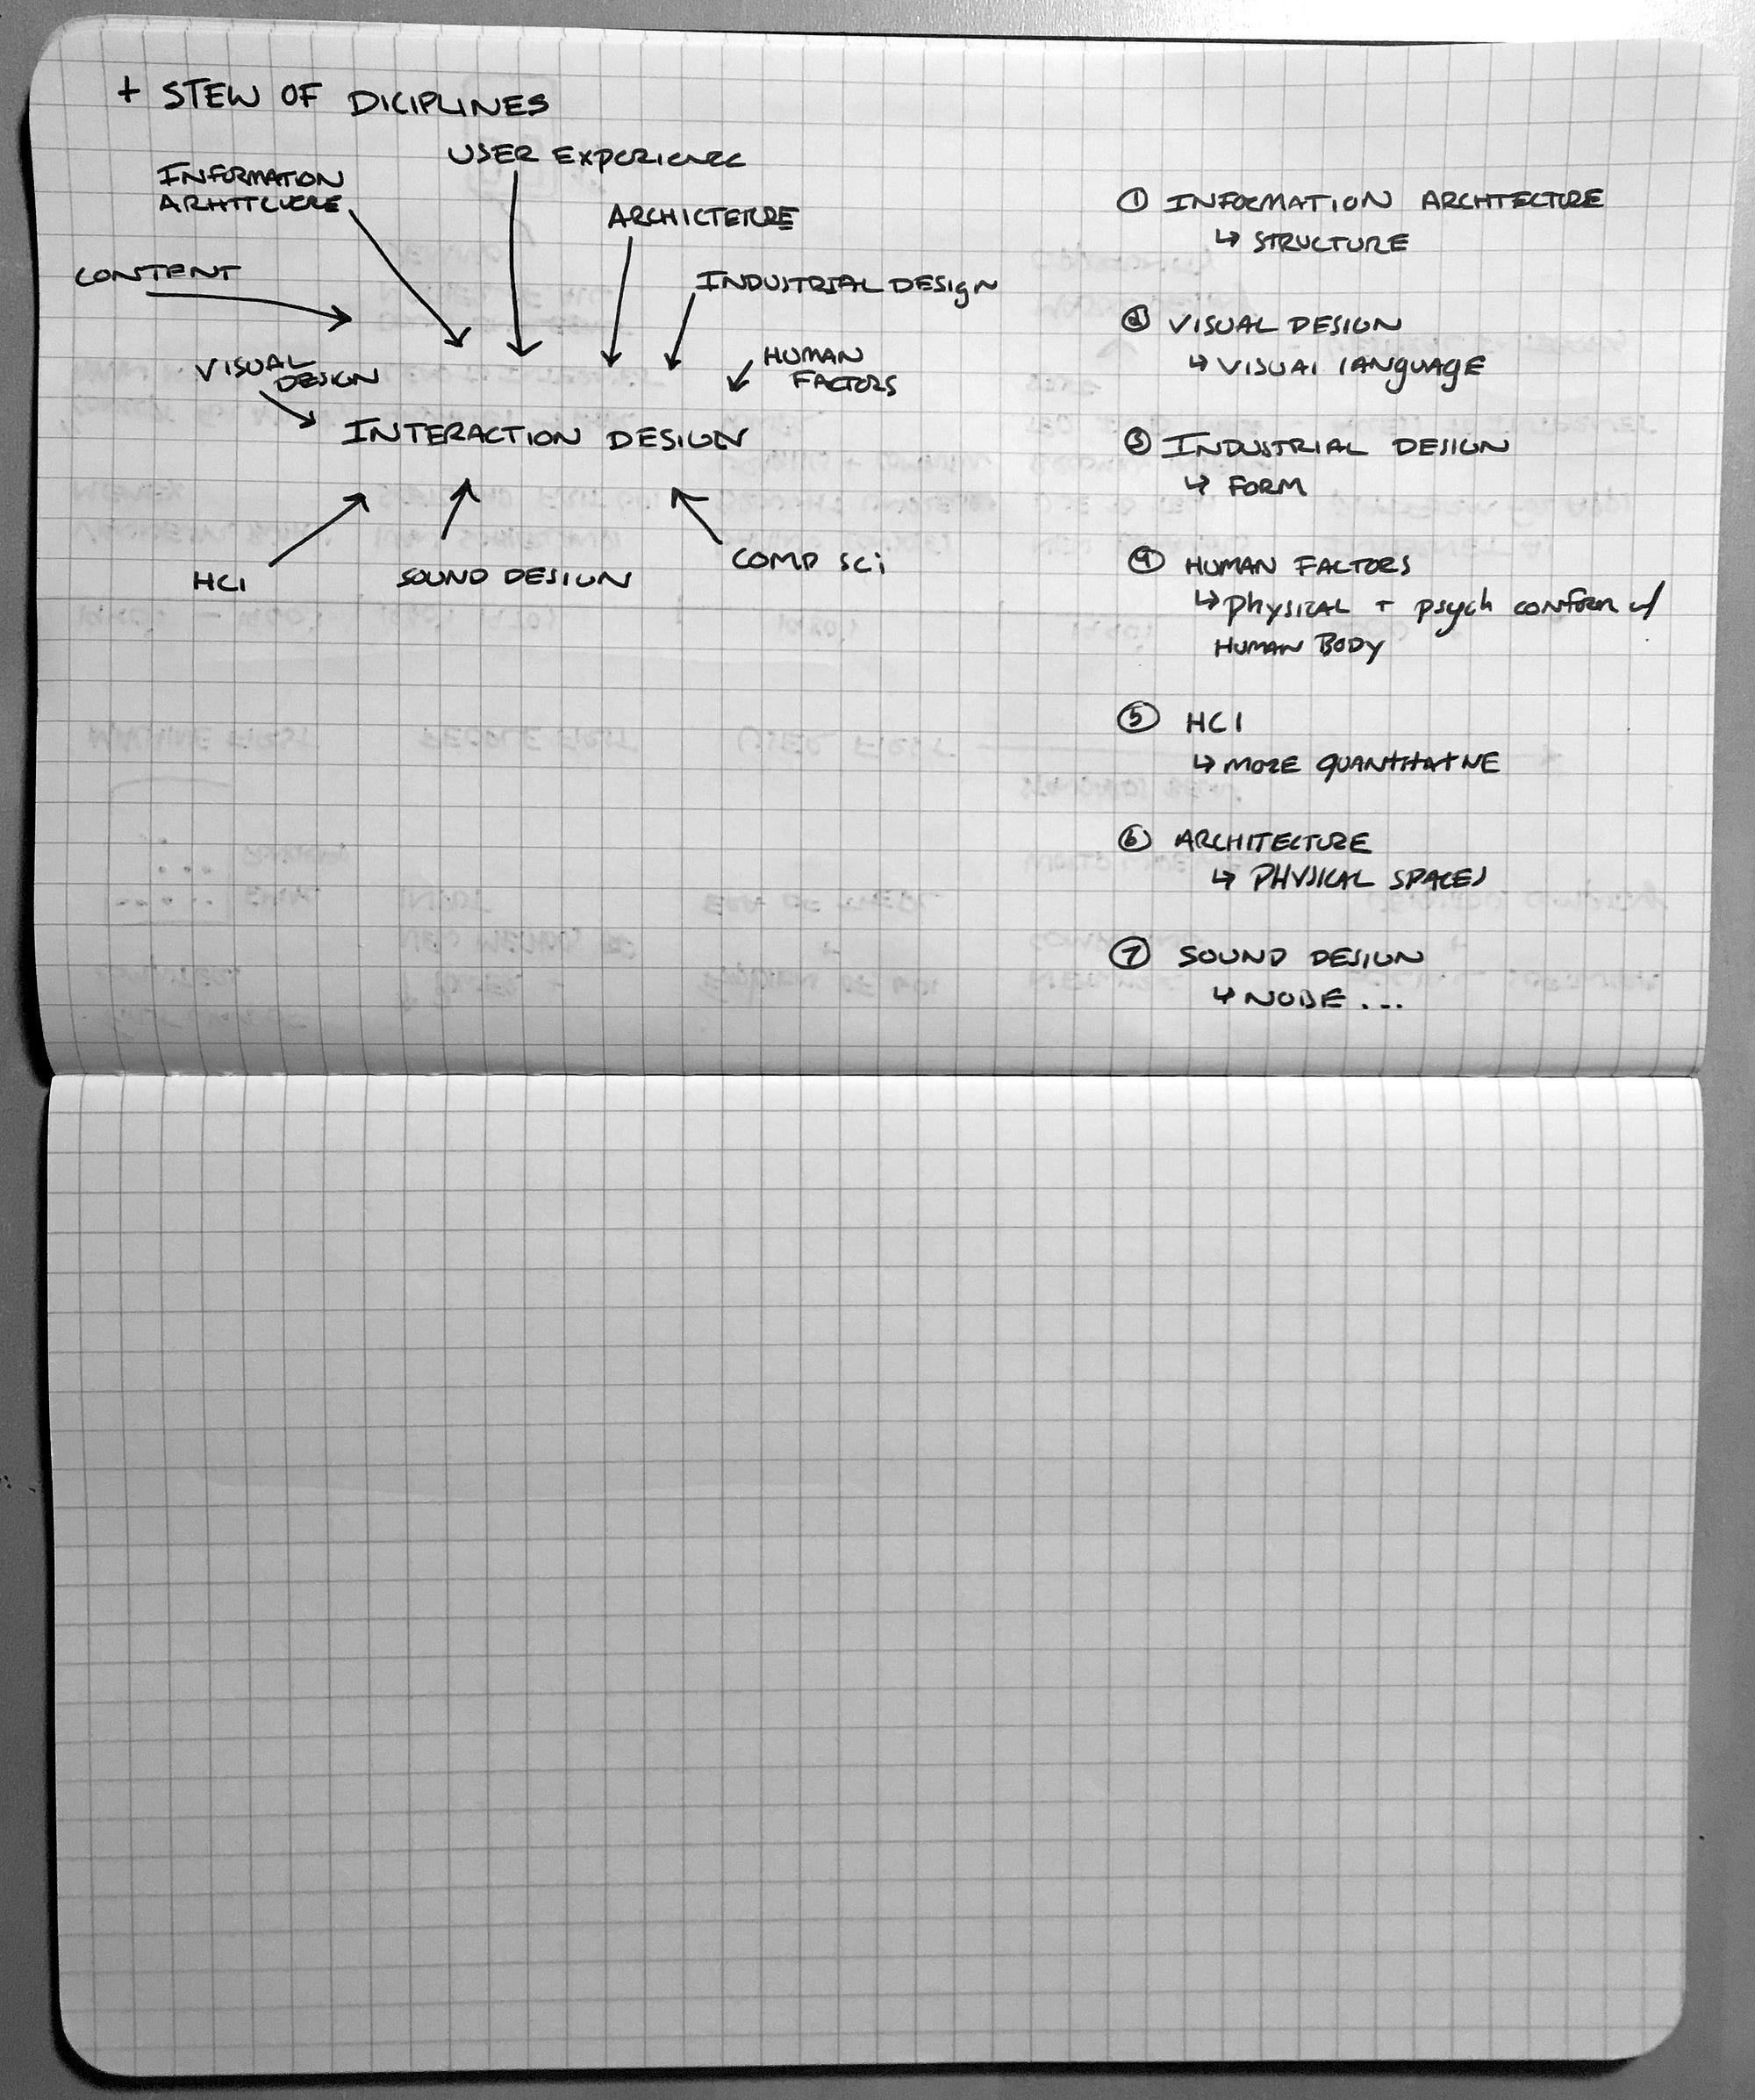 + STEW OF DICIPLINES
USER EXPERIENCE
INFORMATION
ARCHICTETURE
CONTENT
INDUSTRIAL DESIGN
VISUAL
DESIGN
HUMAN
FACTORS
INTERACTION DESIGN
HCI
SOUND DESIGN
COMP SCi
① INFORMATION ARCHTECTURE
↳ STRUCTURE
② VISUAL DESIGN
↳ VISUAL LANGUAGE
③ INDUSTRIAL DESIGN
↳ FORM
④ HUMAN FACTORS
↳ physical + psych conform w/
HUMAN BODY
⑤ HCI
↳ MORE QUANTITATIVE
⑥ ARCHITECTURE
↳ PHYSICAL SPACES
⑦ SOUND DESIGN
↳ NOISE ...